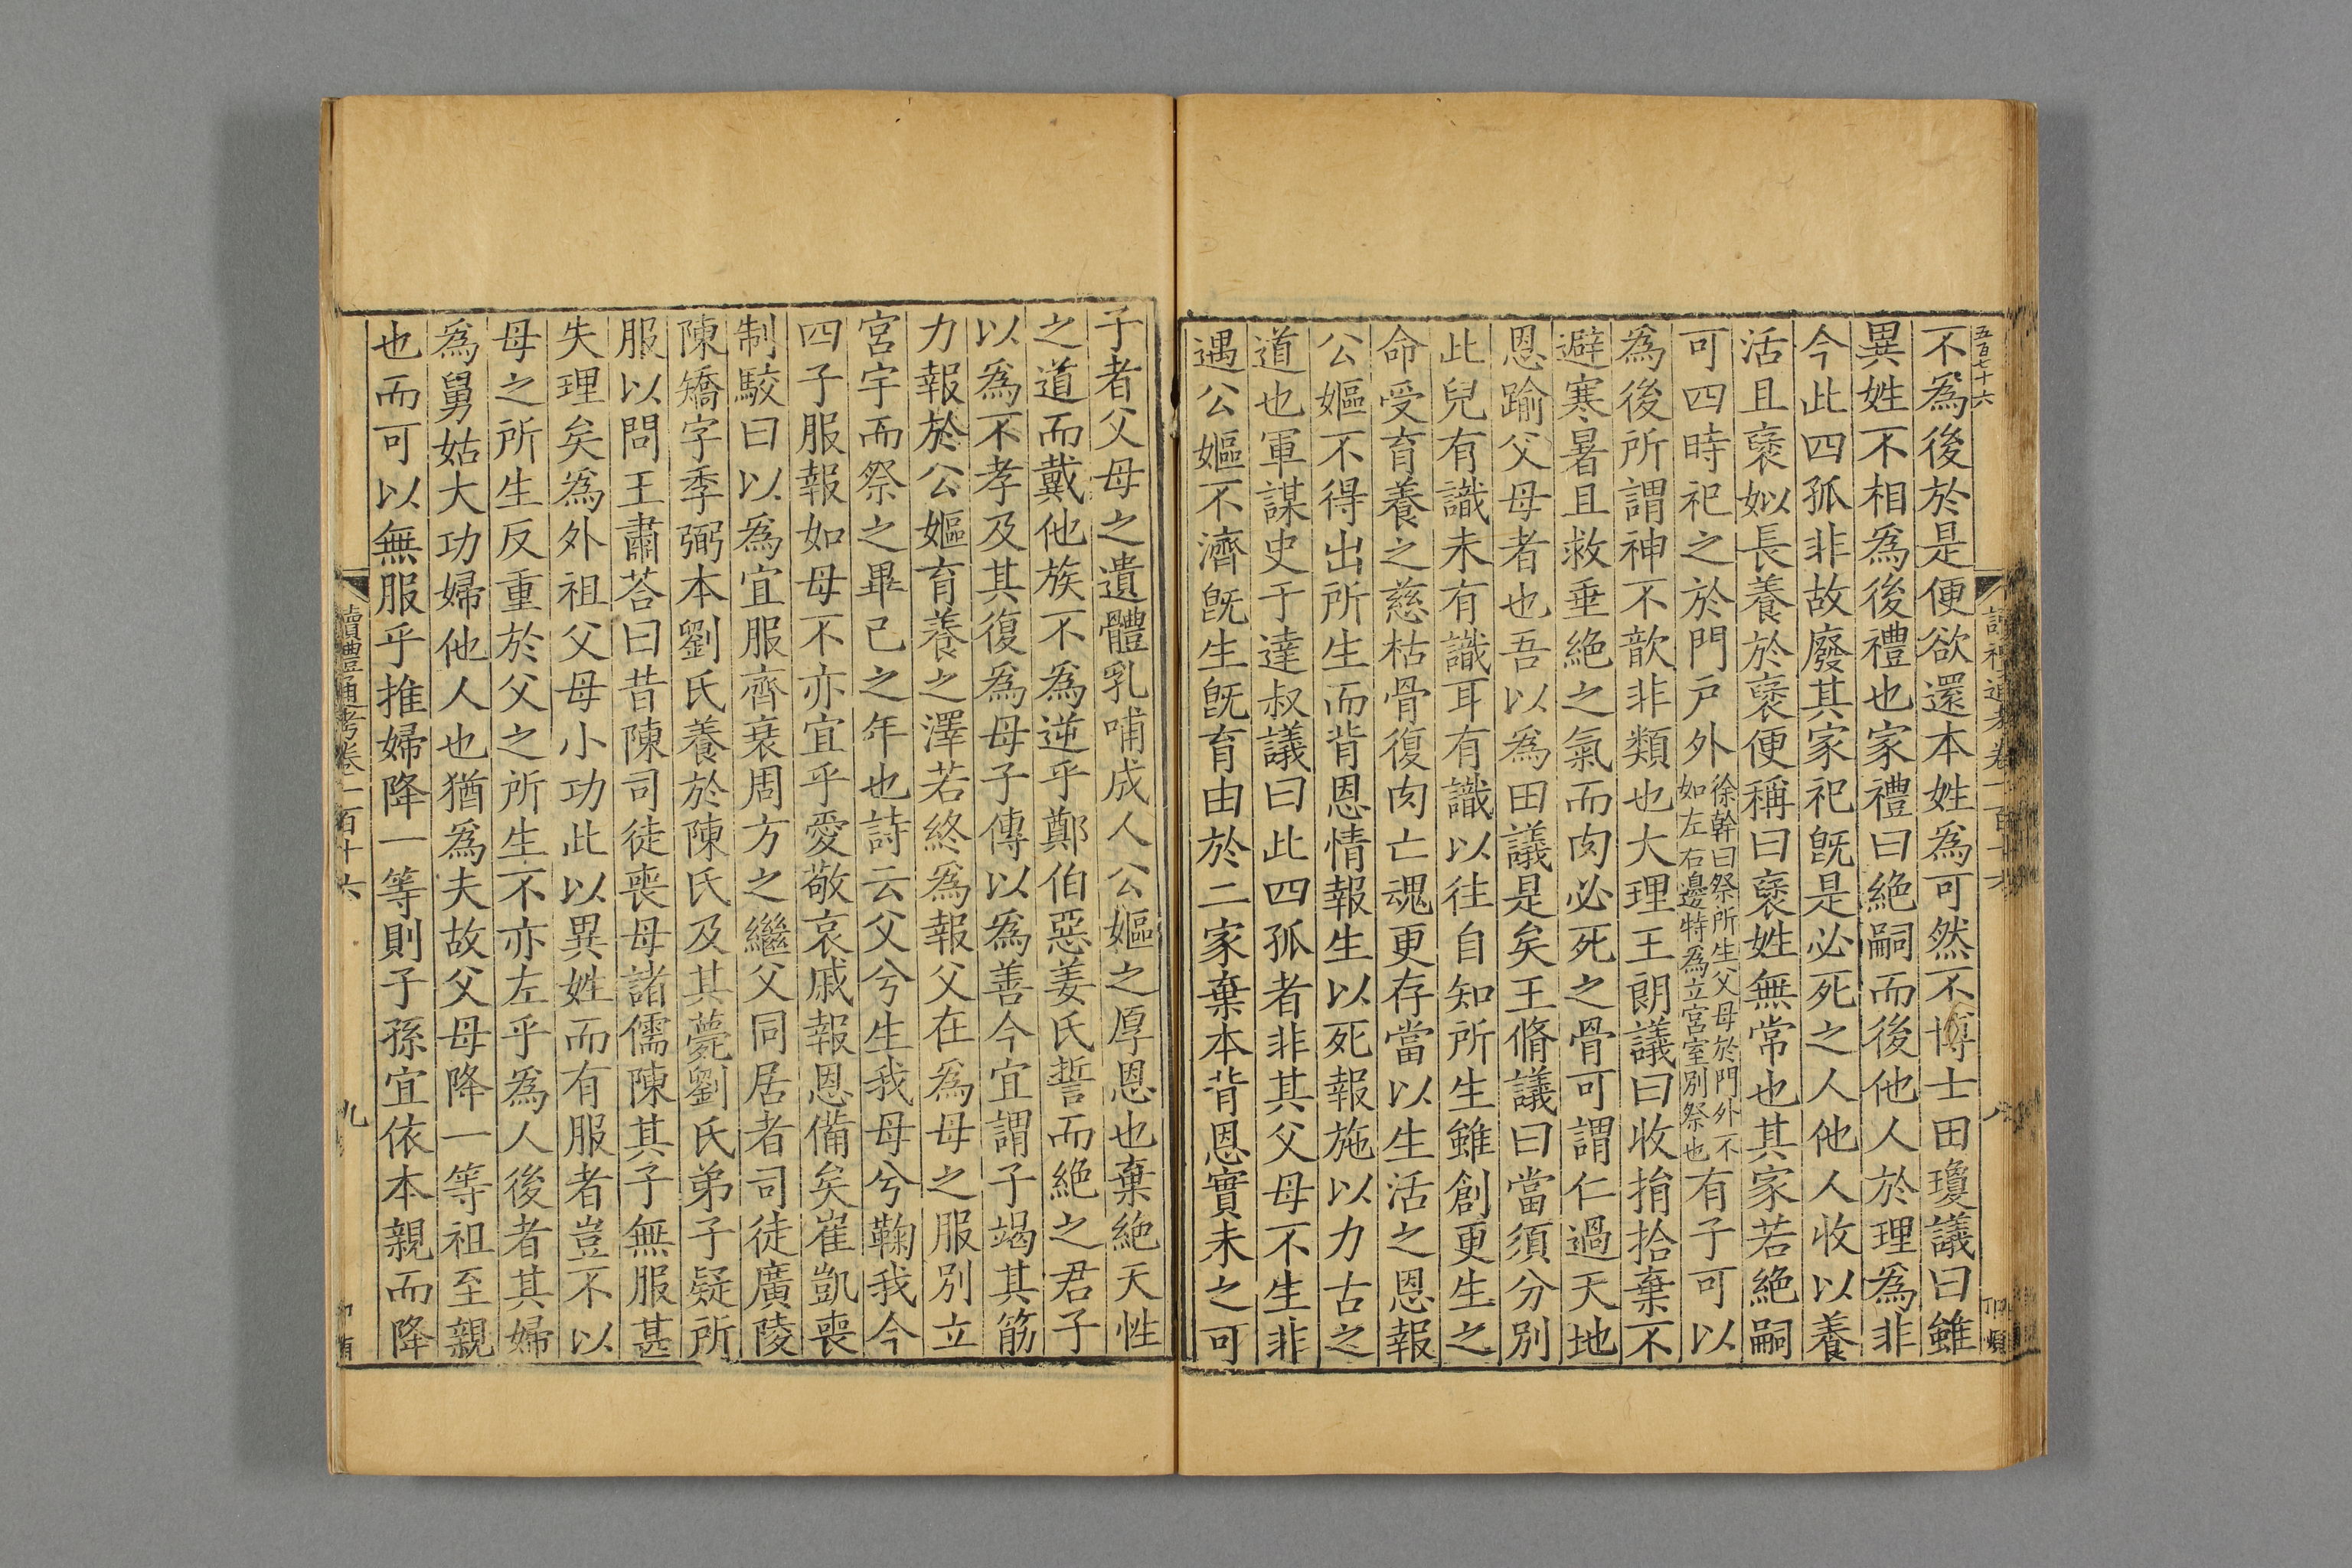 五百七十六
讀禮通考卷一百十六
八
不為後於是便欲還本姓為可然不博士田瓊議曰雖
異姓不相為後禮也家禮曰絶嗣而後他人於理為非
今此四孤非故廢其家祀旣是必死之人他人收以養
活且襃姒長養於襃便稱曰襃姓無常也其家若絶嗣
可四時祀之於門戶外徐幹曰祭所生父母於門外不如左右邊特為立宮室別祭也有子可以
為後所謂神不歆非類也大理王朗議曰收捐拾棄不
避寒暑且救垂絶之氣而肉必死之骨可謂仁過天地
恩踰父母者也吾以為田議是矣王脩議曰當須分別
此兒有識未有識耳有識以往自知所生雖創更生之
命受育養之慈枯骨復肉亡魂更存當以生活之恩報
公嫗不得出所生而背恩情報生以死報施以力古之
道也軍謀史于達叔議曰此四孤者非其父母不生非
遇公嫗不濟旣生旣育由於二家棄本背恩實未之可
子者父母之遺體乳哺成人公嫗之厚恩也棄絶天性
之道而戴他族不為逆乎鄭伯惡姜氏誓而絶之君子
以為不孝及其復為母子傳以為善今宜謂子竭其筋
力報於公嫗育養之澤若終為報父在為母之服別立
宮宇而祭之畢己之年也詩云父兮生我母兮鞠我今
四子服報如母不亦宜乎愛敬哀戚報恩備矣崔凱喪
制駮曰以為宜服齊衰周方之繼父同居者司徒廣陵
陳矯字季弼本劉氏養於陳氏及其薨劉氏弟子疑所
服以問王肅荅曰昔陳司徒喪母諸儒陳其子無服甚
失理矣為外祖父母小功此以異姓而有服者豈不以
母之所生反重於父之所生不亦左乎為人後者其婦
為舅姑大功婦他人也猶為夫故父母降一等祖至親
也而可以無服乎推婦降一等則子孫宜依本親而降
讀禮通考卷一百十六
九